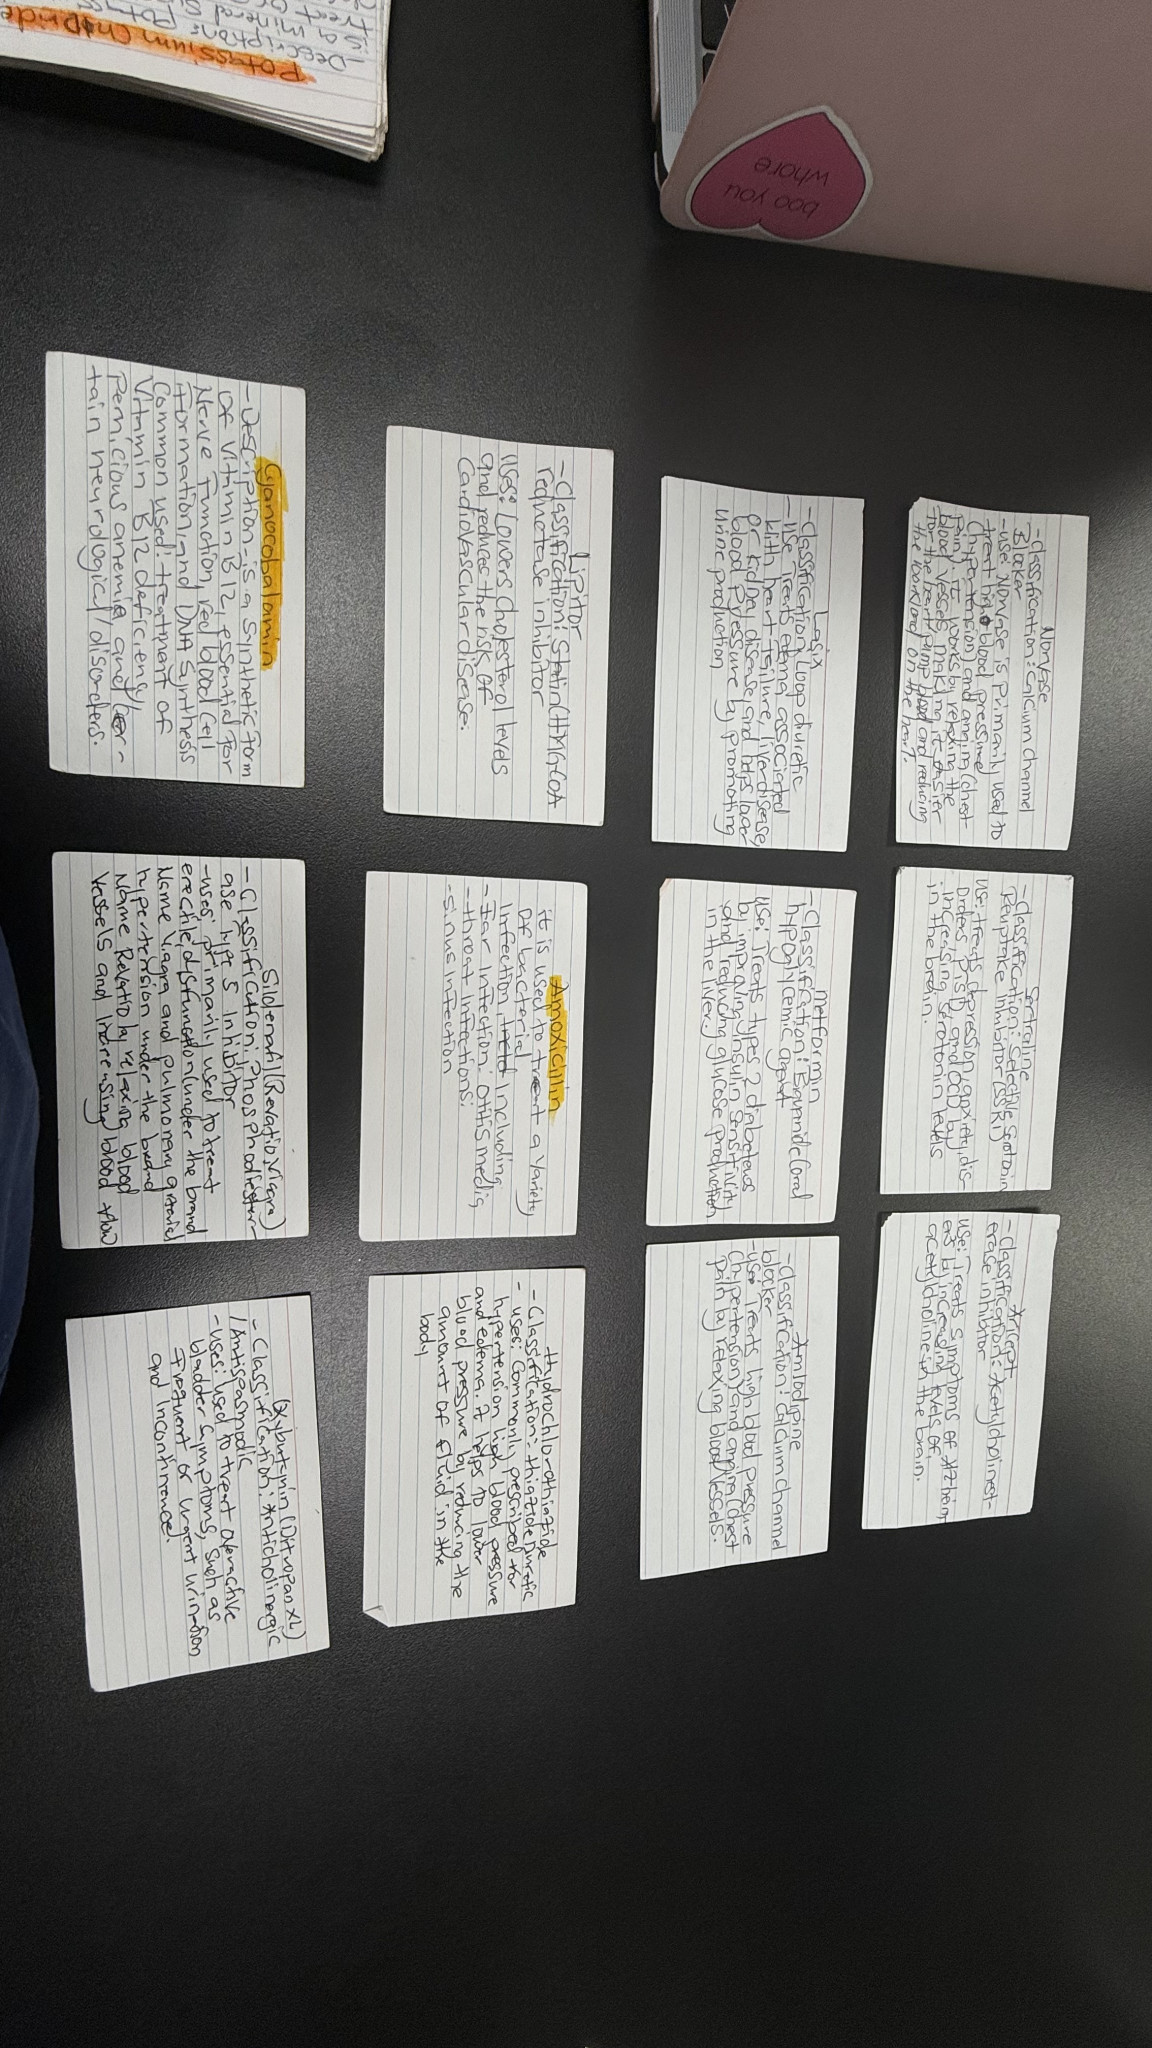 Norvasc
-Classification: Calcium channel
Blocker
-use: Norvasc is primarily used to
treat high blood pressure
(hypertension) and angina (chest
pain). It works by relaxing the
blood vessels, making it easier
for the heart pump blood and reducing
the workload on the heart.
Sertraline
-Classification: Selective Serotonin
Reuptake Inhibitor (SSRI)
use: treats depression, anxiety, dis-
orders, PTSD, and OCD by
increasing serotonin levels
in the brain.
Aricept
-classification: Acetylcholinest-
erase inhibitor
use: Treats symptoms of
by increasing levels of
acetylcholine in the brain.
Lasix
-Classification: Loop diuretic
-use: Treats edema associated
with heart failure, liver disease,
or kidney disease, and helps lower
blood pressure by promoting
urine production
metformin
-Classification: Biguanide (oral
hypoglycemic agent
use: Treats types 2 diabetes
by improving insulin sensitivity
and reducing glucose production
in the liver.
Amlodipine
-Classification: Calcium channel
blocker
-use: Treats high blood pressure
(hypertension) and angina (chest
pain by relaxing blood vessels.
Lipitor
-Classification: Statin (HMG-COA
reductase inhibitor
uses: Lowers cholesterol levels
and reduces the risk of
Cardiovascular disease.
Amoxicillin
it is used to treat a variety
of bacterial
Infection, including
-Ear infection: Otitis media,
-throat infections:
-sinus infection
Hydrochlorothiazide
-Classification: thiazide Diuretic
-uses: Commonly prescribed for
hypertension high blood pressure
and edema. it helps to lower
blood pressure by reducing the
amount of fluid in the
body
Cyanocobalamin
-Description- is a synthetic form
of vitamin B12, essential for
Nerve function, red blood cell
formation, and DNA synthesis
Common used: treatment of
Vitamin B12 deficiency,
Pernicious anemia and cer-
tain neurological disorders.
Sildenafil (Revatio, Viagra)
-Classification: Phosphodiester-
ase type 5 Inhibitor
-uses: primarily used to treat
erectile dysfunction (under the brand
Name Viagra and pulmonary arterial
hypertension under the brand
Name Revatio by relaxing blood
vessels and increasing blood flow
Oxybutynin (Ditropan XL)
-Classification: Anticholinergic
/Antispasmodic
-uses: used to treat overactive
bladder symptoms, such as
frequent or urgent urination
and incontinence.
Potassium Chloride
-Description:
is a mineral
treat
boo you
whore